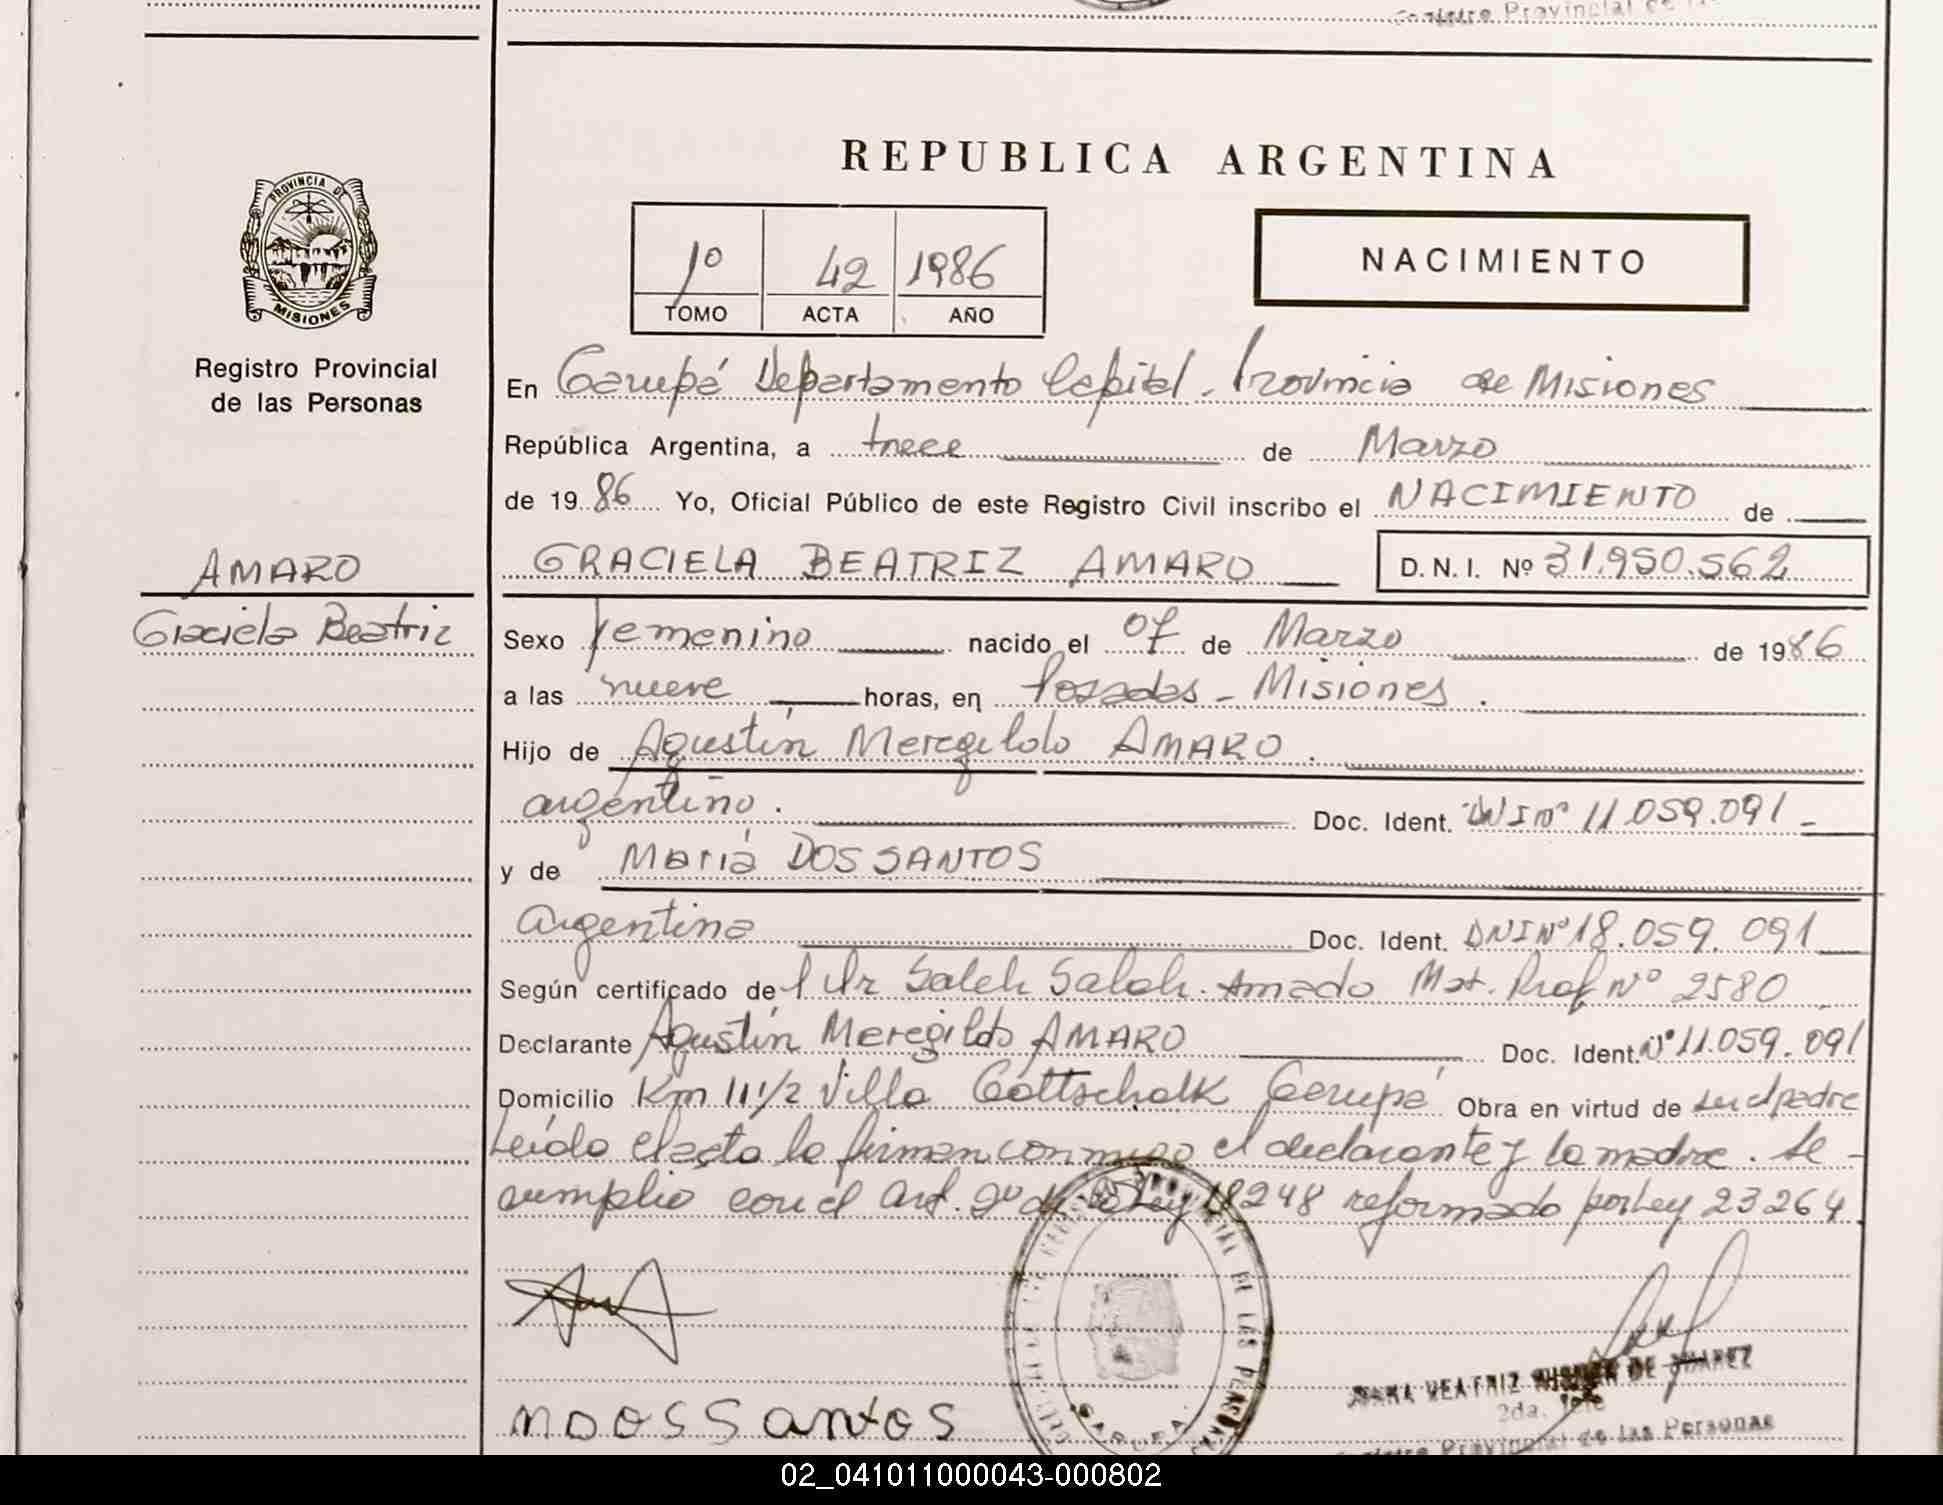 Registro Provincial de
REPUBLICA ARGENTINA
PROVINCIA DE
MISIONES
Registro Provincial
de las Personas
1º 42 1986
TOMO ACTA AÑO
NACIMIENTO
En Garupá Departamento Capital. Provincia de Misiones
República Argentina, a trece de Marzo
de 1986 Yo, Oficial Público de este Registro Civil inscribo el NACIMIENTO de
AMARO
Graciela Beatriz
GRACIELA BEATRIZ AMARO D.N.I. Nº 31.950.562
Sexo femenino nacido el 07 de Marzo de 1986
a las nueve horas, en Posadas - Misiones.
Hijo de Agustín Meregildo AMARO.
argentino. Doc. Ident. DNI Nº 11.059.091 -
y de María DOS SANTOS
argentina Doc. Ident. DNI Nº 18.059.091
Según certificado del Dr Saleh Saleh Amado Mat. Prof Nº 2580
Declarante Agustín Meregildo AMARO Doc. Ident. Nº 11.059.091
Domicilio Km 11 1/2 Villa Gottschalk Garupá Obra en virtud de ser el padre
Leído el acta la firman conmigo el declarante y la madre. Se
cumplio con el Art. 2º de la Ley 18248 reformado por Ley 23264
mDosSantos
BEATRIZ DE JUAREZ
2da. Jefe
Registro Provincial de las Personas
GARUPA
02_041011000043-000802